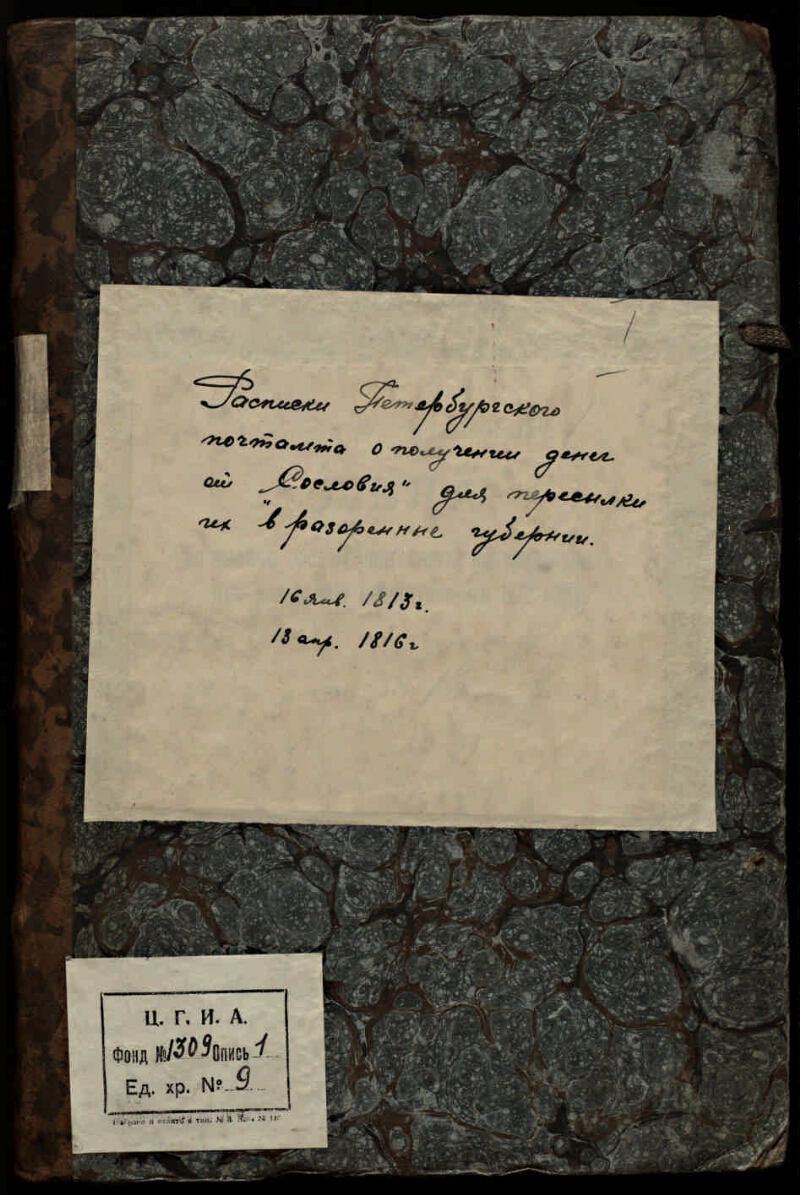 Расписки Петербургского
почтамта о получении денег
от „Сословия" для пересылки
их "в разоренные губернии.
16 янв. 1813 г.
13 апр. 1816 г
Ц. Г. И. А.
Фонд № 1309 Опись 1
Ед. хр. № 9